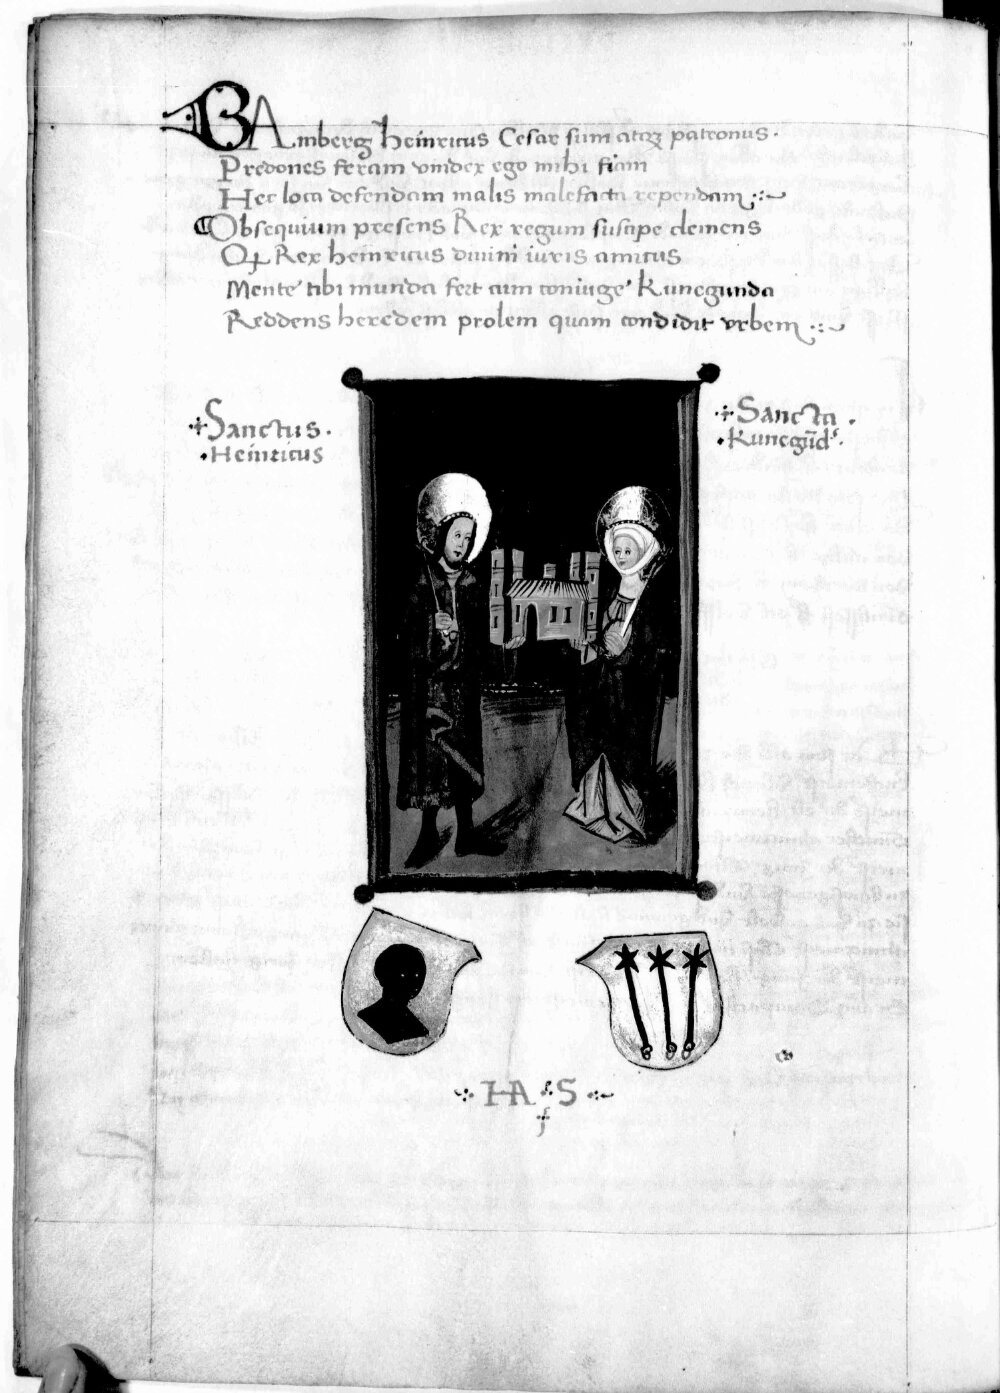 BAmberg Heinricus Cesar sum atqꝫ patronus.
Predones feram vindex ego mihi fiam
Hec loca defendam malis malefacta rependam
Obsequium presens Rex regum suscipe clemens
Qꝫ Rex heinricus diuini iuris amicus
Mente tibi munda fert cum coniuge Kunegunda
Reddens heredem prolem quam condidit vrbem
Sanctus.
Heinricus
Sancta.
Kunegūd⁹.
HA S
f